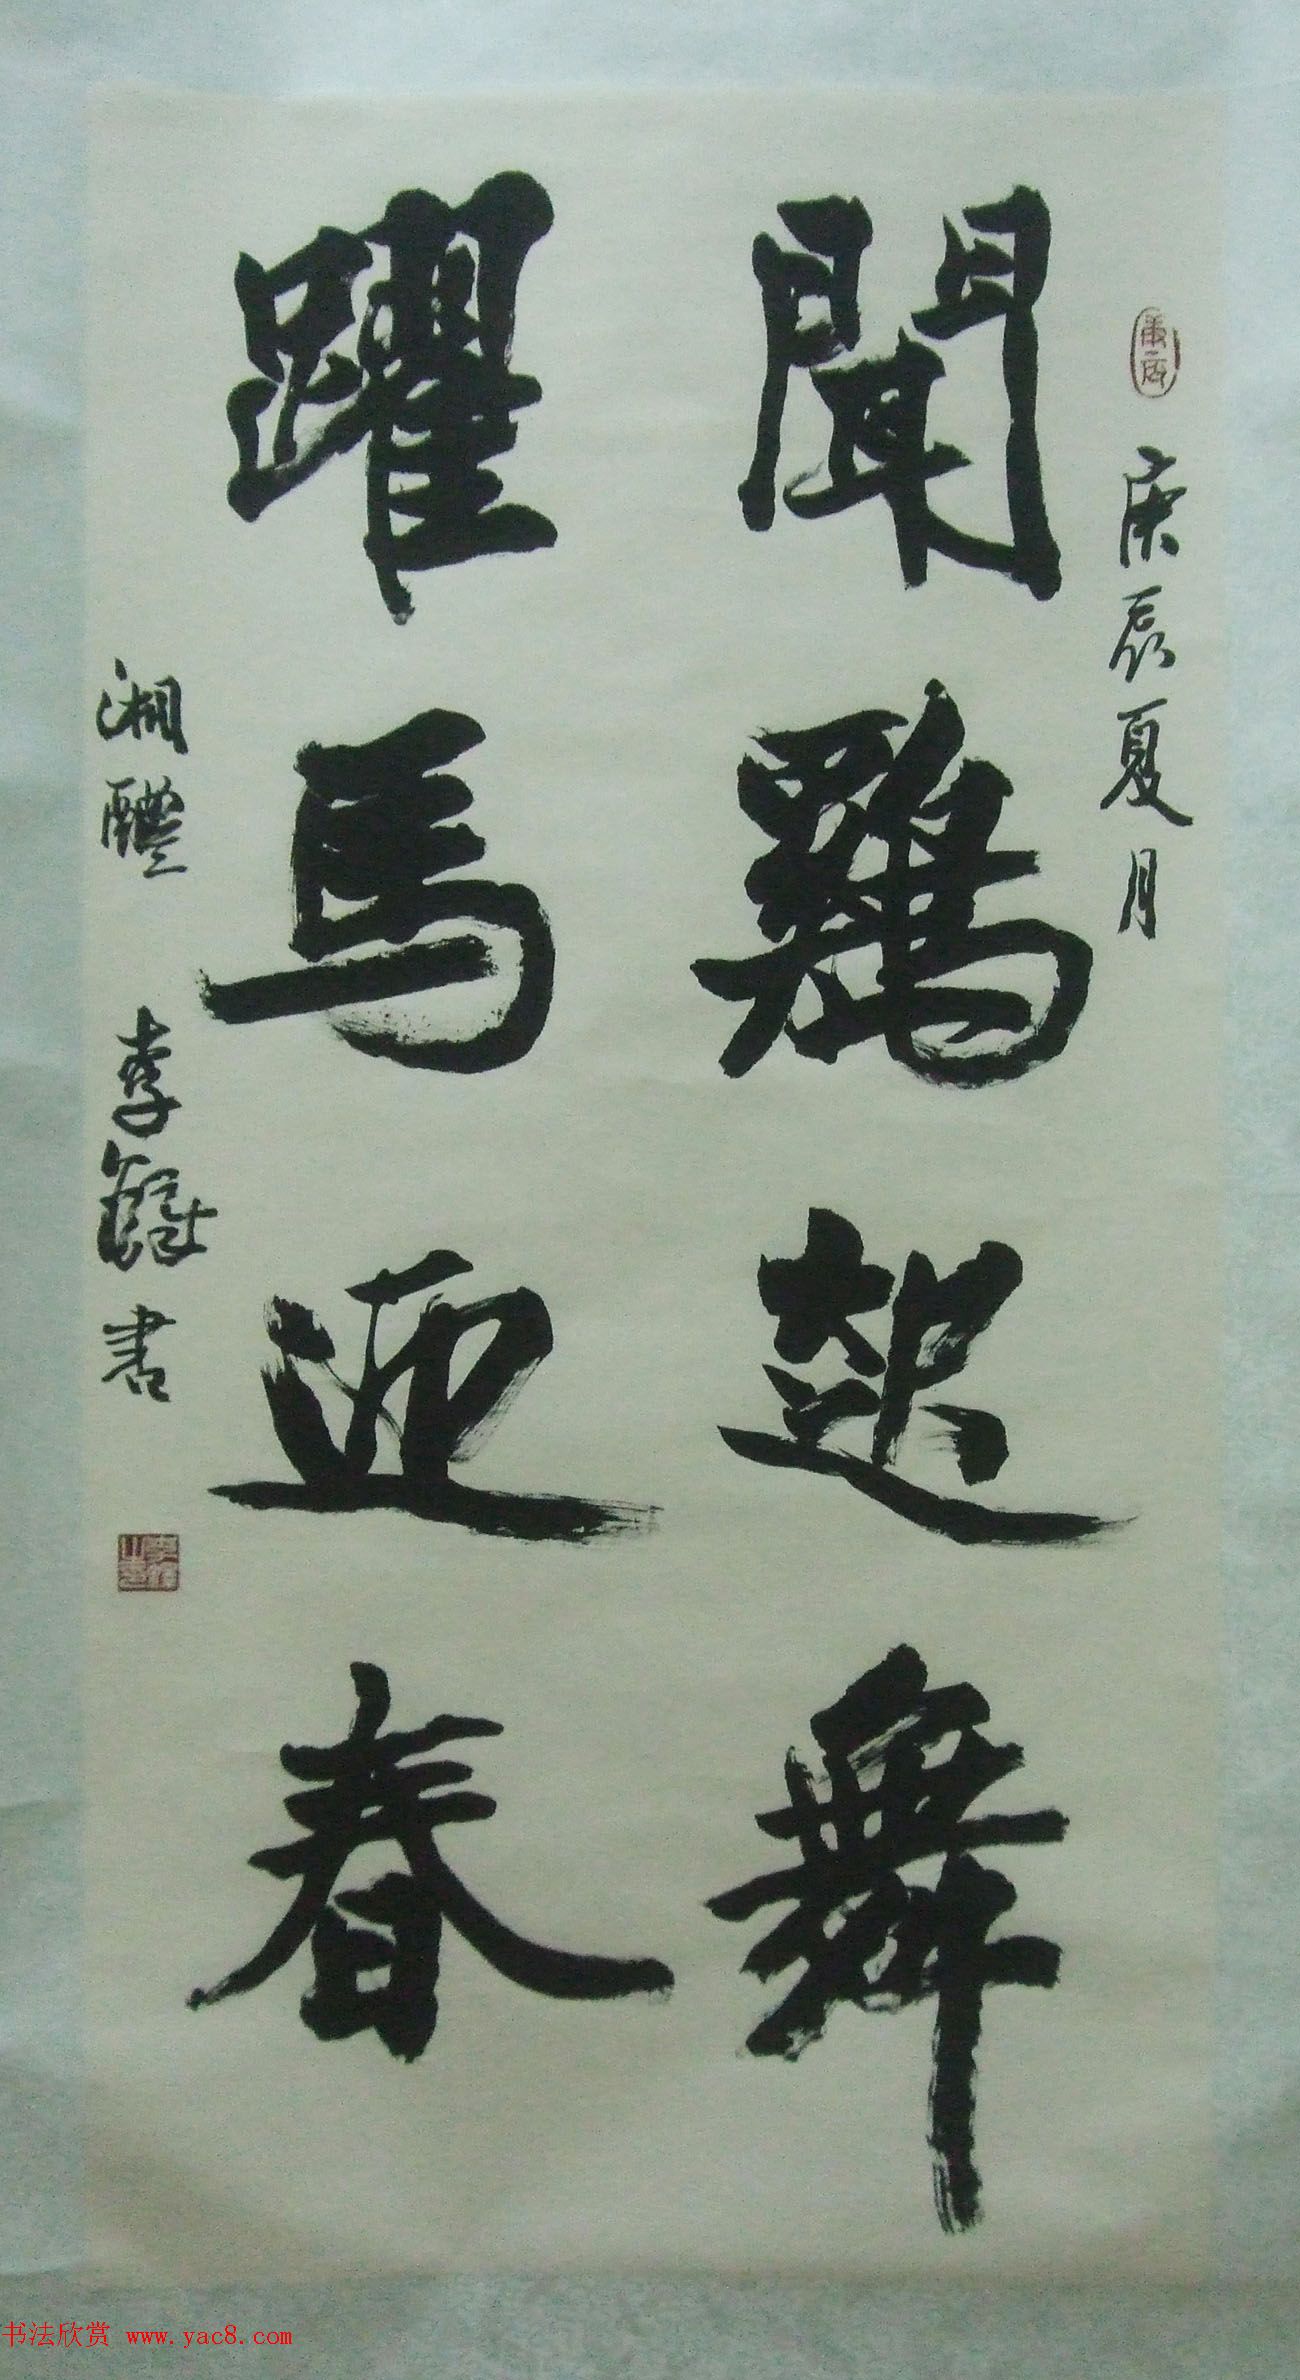 庚辰夏月
聞鷄起舞
躍馬迎春
湘醴 李鐸書
书法欣赏 www.yac8.com